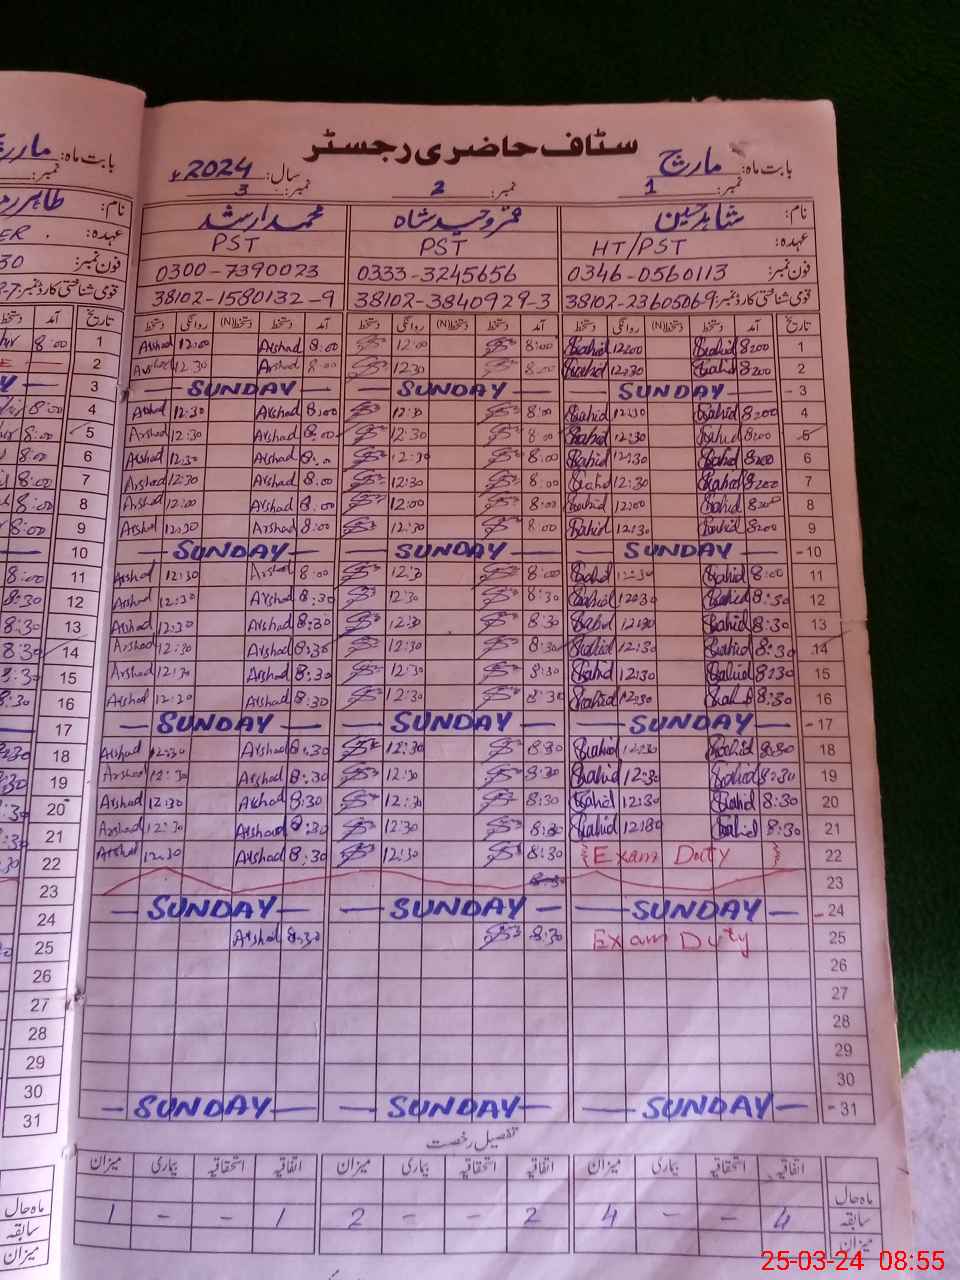 سٹاف حاضری رجسٹر
بابت ماہ: مارچ سال: 2024ء
نمبر: 1 نمبر: 2 نمبر: 3
نام: شاہد حسین عمر وحید شاہ محمد ارشد
عہدہ: HT/PST PST PST
فون نمبر: 0346-0560113 0333-3245656 0300-7390023
قومی شناختی کارڈ نمبر: 38102-2360506-9 38102-3840929-3 38102-1580132-9
تاریخ آمد دستخط (N) روانگی دستخط آمد دستخط دستخط(N) روانگی دستخط آمد دستخط دستخط(N) روانگی دستخط
1 8:00 Shahid 12:00 Shahid 8:00 12:00 8:00 Arshad 12:00 Arshad
2 8:00 Shahid 12:30 Shahid 8:00 12:30 8:00 Arshad 12:30 Arshad
3 SUNDAY SUNDAY SUNDAY
4 8:00 Shahid 12:30 Shahid 8:00 12:30 8:00 Arshad 12:30 Arshad
5 8:00 Shahid 12:30 Shahid 8:00 12:30 8:00 Arshad 12:30 Arshad
6 8:00 Shahid 12:30 Shahid 8:00 12:30 8:00 Arshad 12:30 Arshad
7 8:00 Shahid 12:30 Shahid 8:00 12:30 8:00 Arshad 12:30 Arshad
8 8:00 Shahid 12:00 Shahid 8:00 12:00 8:00 Arshad 12:00 Arshad
9 8:00 Shahid 12:30 Shahid 8:00 12:30 8:00 Arshad 12:30 Arshad
10 SUNDAY SUNDAY SUNDAY
11 8:00 Shahid 12:30 Shahid 8:00 12:30 8:00 Arshad 12:30 Arshad
12 8:30 Shahid 12:30 Shahid 8:30 12:30 8:30 Arshad 12:30 Arshad
13 8:30 Shahid 12:30 Shahid 8:30 12:30 8:30 Arshad 12:30 Arshad
14 8:30 Shahid 12:30 Shahid 8:30 12:30 8:30 Arshad 12:30 Arshad
15 8:30 Shahid 12:30 Shahid 8:30 12:30 8:30 Arshad 12:30 Arshad
16 8:30 Shahid 12:30 Shahid 8:30 12:30 8:30 Arshad 12:30 Arshad
17 SUNDAY SUNDAY SUNDAY
18 8:30 Shahid 12:30 Shahid 8:30 12:30 8:30 Arshad 12:30 Arshad
19 8:30 Shahid 12:30 Shahid 8:30 12:30 8:30 Arshad 12:30 Arshad
20 8:30 Shahid 12:30 Shahid 8:30 12:30 8:30 Arshad 12:30 Arshad
21 8:30 Shahid 12:30 Shahid 8:30 12:30 8:30 Arshad 12:30 Arshad
22 Exam Duty 8:30 12:30 8:30 Arshad 12:30 Arshad
23 8:30
24 SUNDAY SUNDAY SUNDAY
25 Exam Duty 8:30 8:30 Arshad
26
27
28
29
30
31 SUNDAY SUNDAY SUNDAY
تفصیل رخصت
اتفاقیہ استحقاقیہ بیماری میزان اتفاقیہ استحقاقیہ بیماری میزان اتفاقیہ استحقاقیہ بیماری میزان
ماہ حال
سابقہ 4 - - 4 2 - - 2 1 - - 1
میزان
25-03-24 08:55